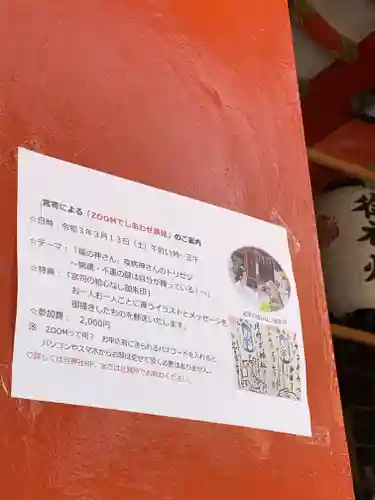 宮司による「ZOOMでしあわせ講話」のご案内
☆日時:令和3年3月13日(土)午前11時~正午
☆テーマ:「福の神さん、疫病神さんのトリセツ
~開運・不運の鍵は自分が握っている!~」
☆特典:「宮司の絵心なし御朱印」
お一人お一人ごとに違うイラストとメッセージを
御描きしたものを郵送いたします。
☆参加費: 2,000円
※ ZOOMって何? お申込後に送られるパスワードを入れると
パソコンやスマホからお顔は見せて頂く必要はありません。
♡詳しくは当神社HP、または社務所でお尋ねください。